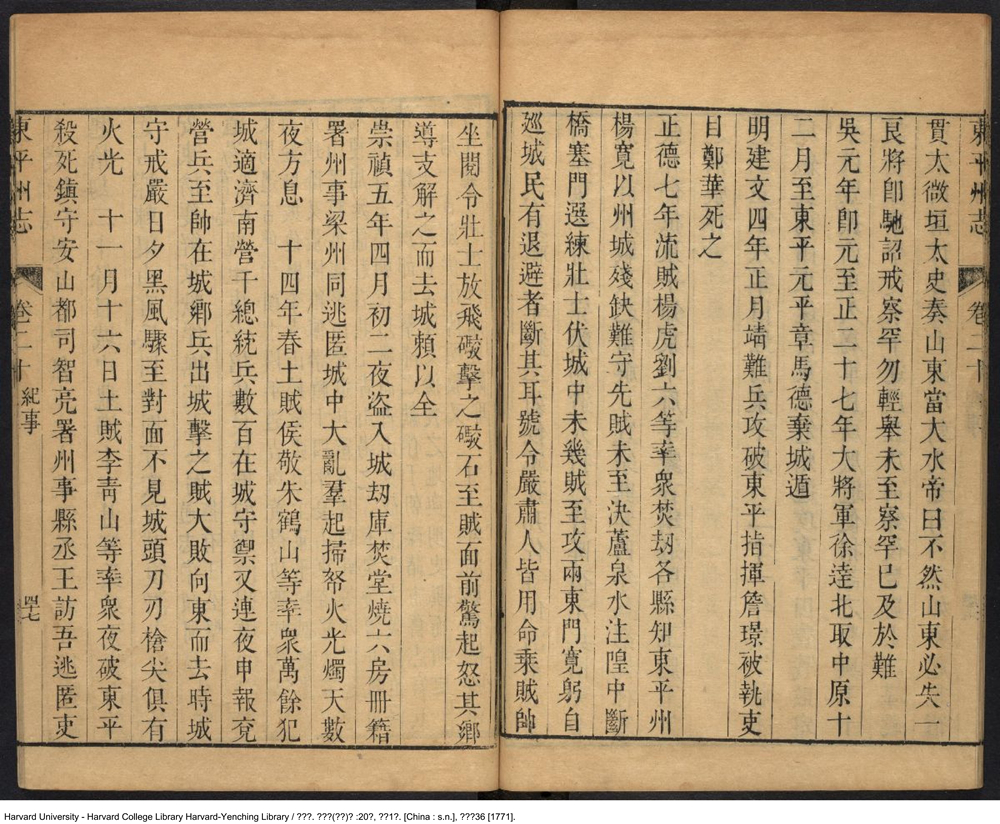 東平州志
卷二十
貫太微垣太史奏山東當大水帝曰不然山東必失一
良將卽馳詔戒察罕勿輕舉未至察罕已及於難
吳元年卽元至正二十七年大將軍徐達北取中原十
二月至東平元平章馬德棄城遁
明建文四年正月靖難兵攻破東平指揮詹璟被執吏
目鄭華死之
正德七年流賊楊虎劉六等率衆焚刼各縣知東平州
楊寬以州城殘缺難守先賊未至決蘆泉水注隍中斷
橋塞門選練壯士伏城中未幾賊至攻兩東門寬躬自
廵城民有退避者斷其耳號令嚴肅人皆用命乘賊帥
坐閱令壯士放飛礮擊之礮石至賊面前驚起怒其鄉
導支解之而去城賴以全
崇禎五年四月初二夜盜入城刼庫焚堂燒六房冊籍
署州事梁州同逃匿城中大亂羣起掃帑火光燭天數
夜方息　十四年春土賊侯敬朱鶴山等率衆萬餘犯
城適濟南營千總統兵數百在城守禦又連夜申報兗
營兵至帥在城鄉兵出城擊之賊大敗向東而去時城
守戒嚴日夕黑風驟至對面不見城頭刀刃槍尖俱有
火光　十一月十六日土賊李靑山等率衆夜破東平
殺死鎮守安山都司智亮署州事縣丞王訪吾逃匿吏
東平州志
卷二十
紀事
四七
Harvard University - Harvard College Library Harvard-Yenching Library / ???. ???(??)? :20?, ??1?. [China : s.n.], ???36 [1771].